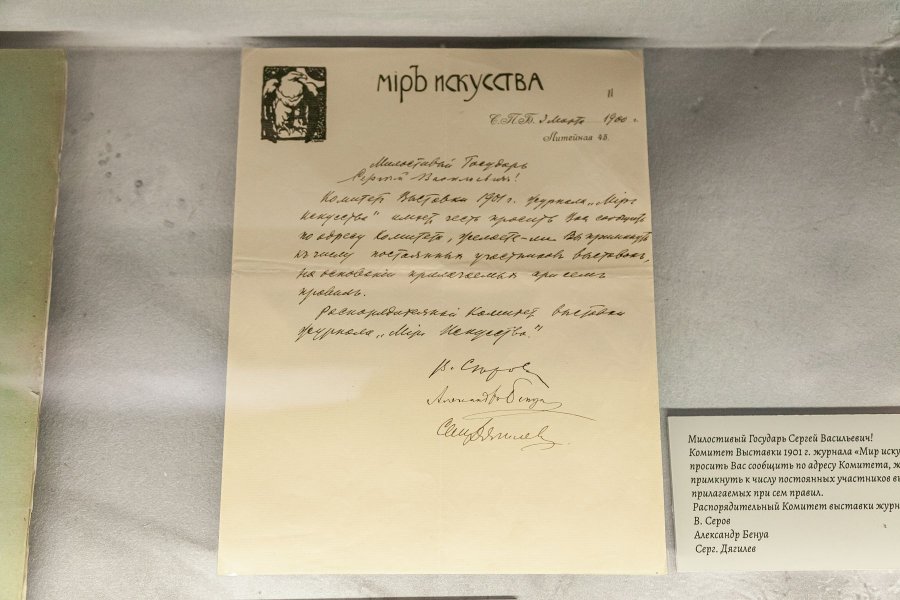 мiръ искусства
С.П.Б. 3 Марта 1900 г.
Литейная 45.
Милостивый Государь
Сергей Васильевичъ!
Комитетъ Выставки 1901 г. журнала „Мiръ
искусства" имѣетъ честь просить Васъ сообщить
по адресу Комитета, желаете-ли Вы примкнуть
къ числу постоянныхъ участниковъ выставокъ,
на основанiи прилагаемыхъ при семъ
правилъ.
Распорядительный Комитетъ выставки
журнала „Мiръ Искусства."
В. Серовъ
Александръ Бенуа
Серг. Дягилев
Милостивый Государь Сергей Васильевич!
Комитет Выставки 1901 г. журнала «Мир иску
просить Вас сообщить по адресу Комитета, ж
примкнуть к числу постоянных участников вы
прилагаемых при сем правил.
Распорядительный Комитет выставки журн
В. Серов
Александр Бенуа
Серг. Дягилев